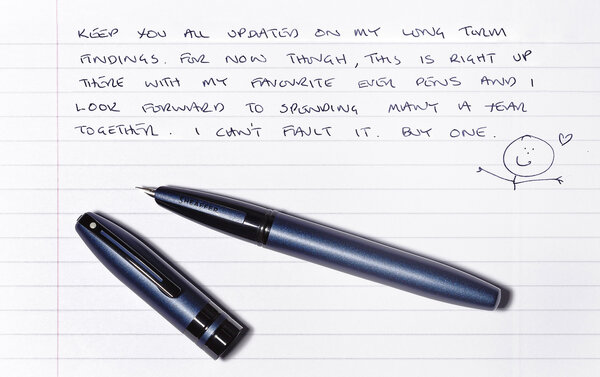 KEEP YOU ALL UPDATED ON MY LONG TERM
FINDINGS. FOR NOW THOUGH, THIS IS RIGHT UP
THERE WITH MY FAVOURITE EVER PENS AND I
LOOK FORWARD TO SPENDING MANY A YEAR
TOGETHER. I CAN'T FAULT IT. BUY ONE.
SHEAFFER